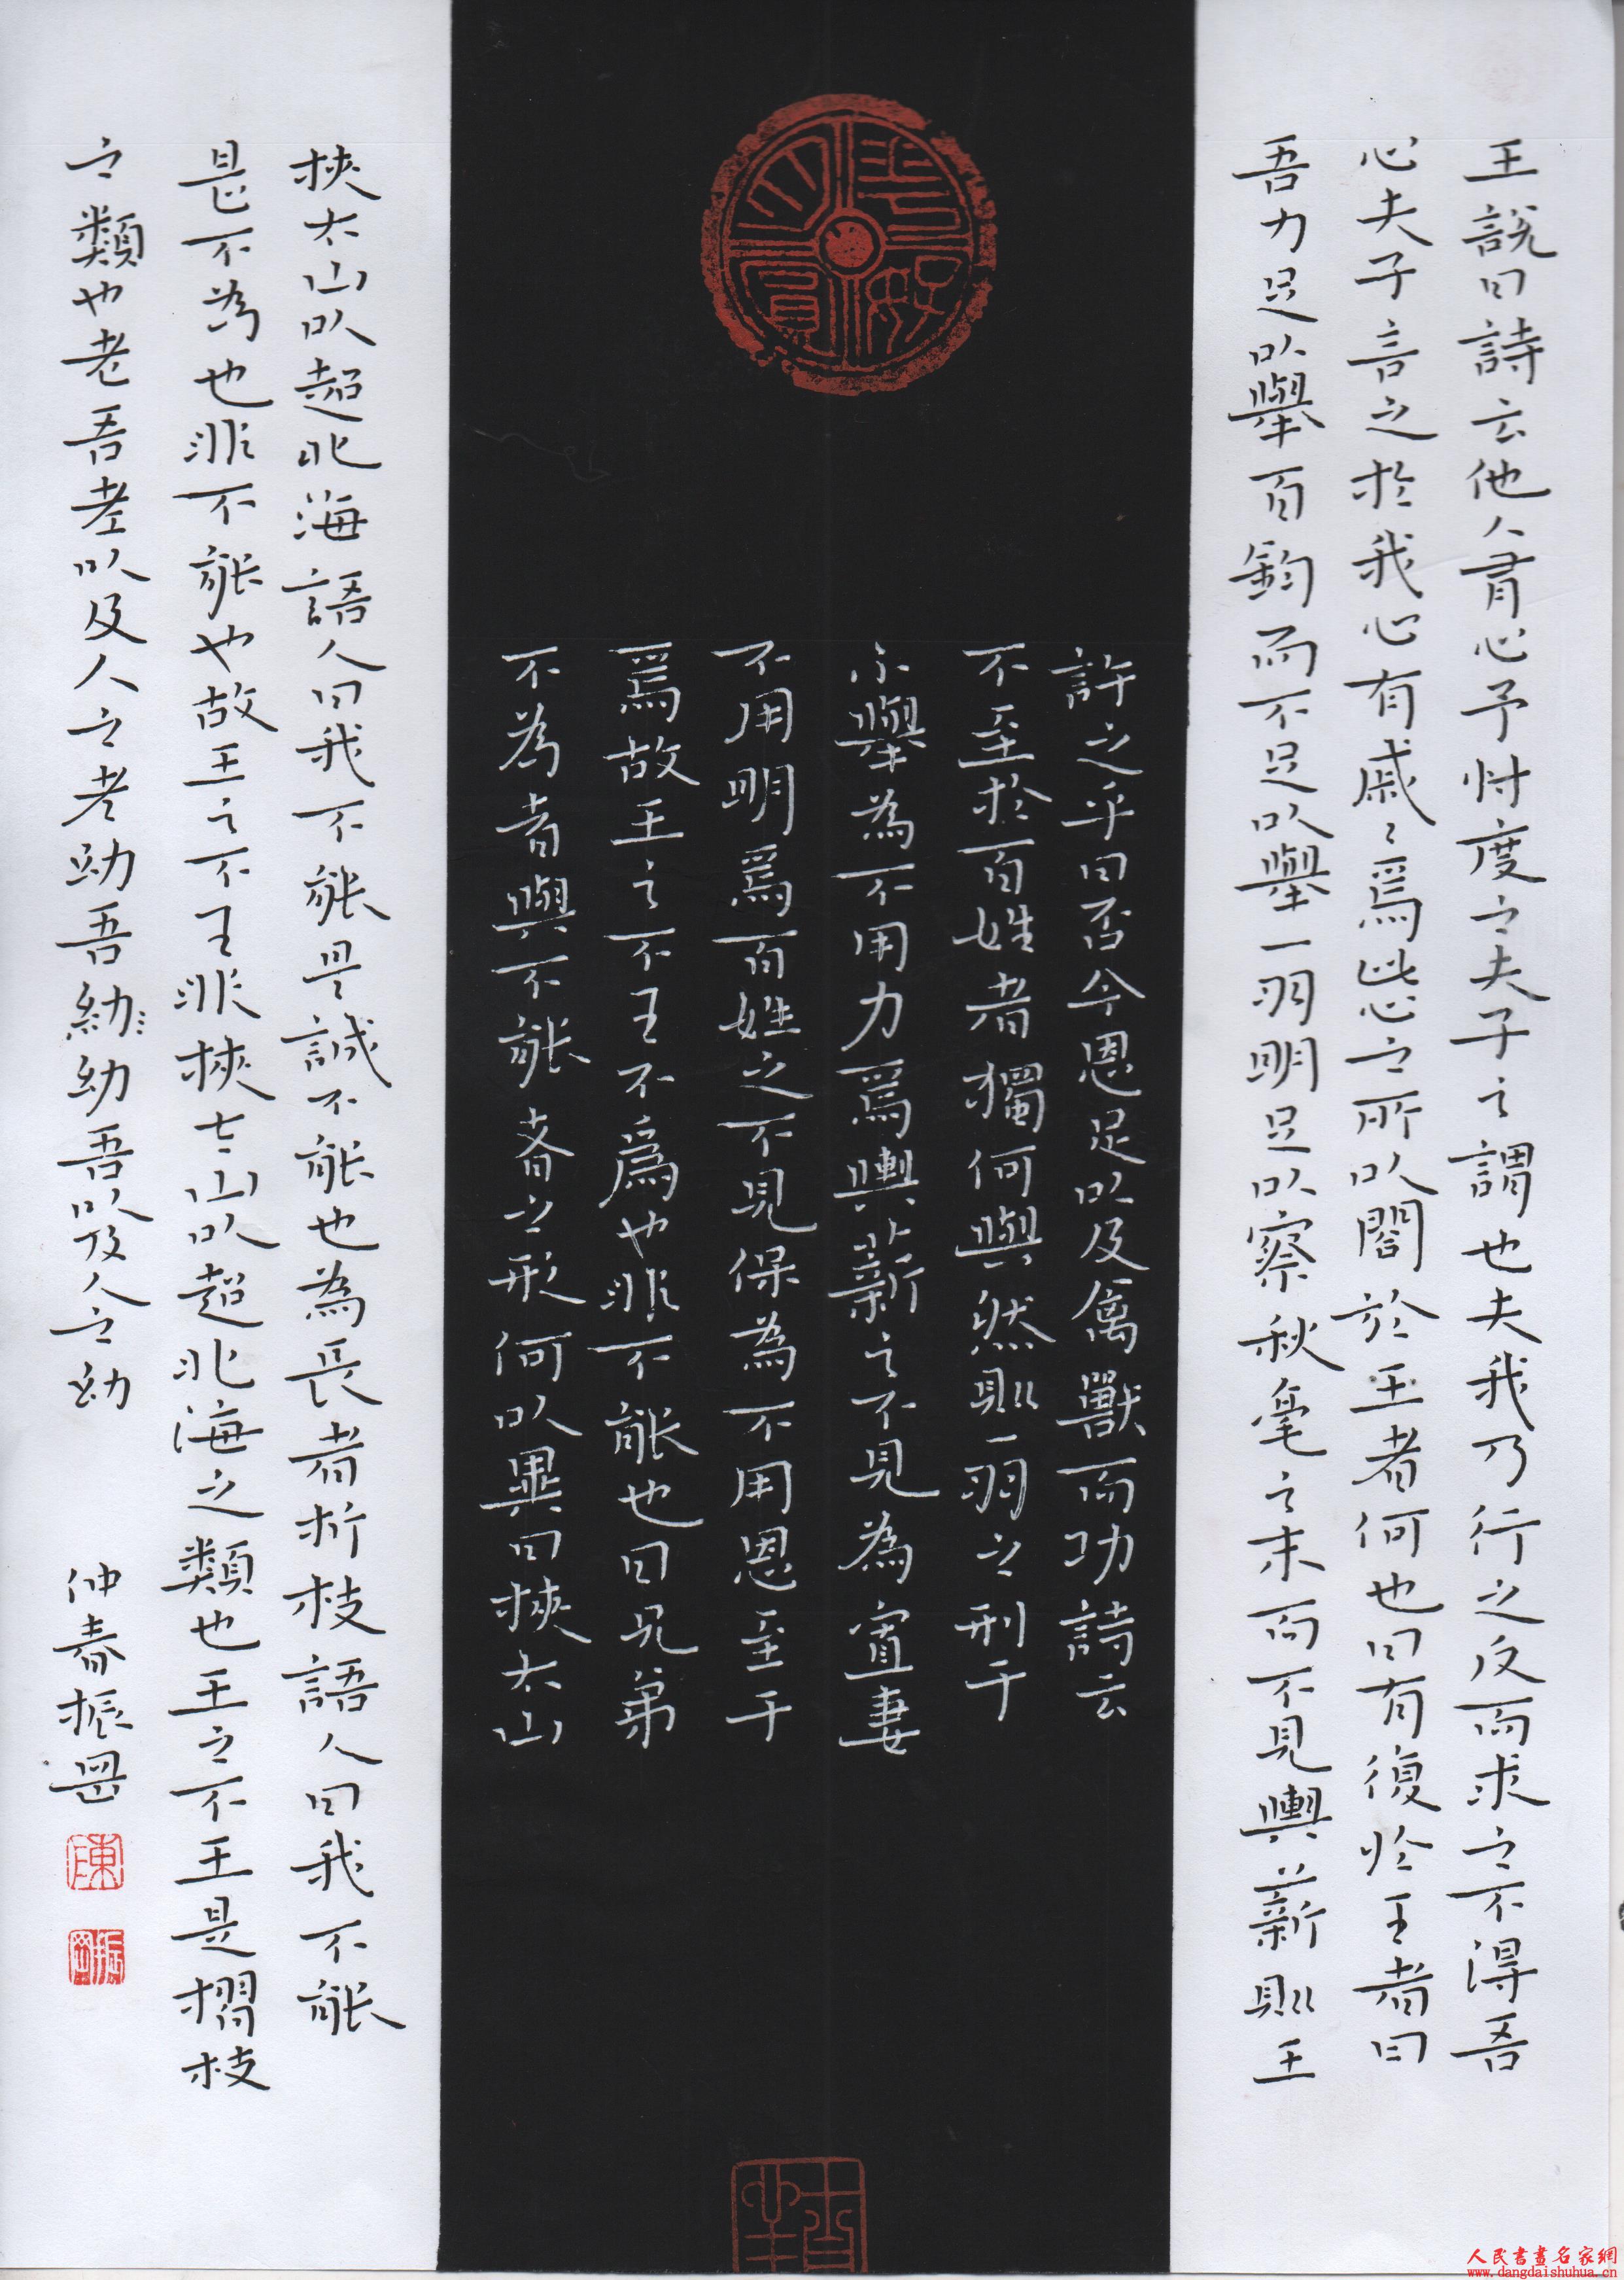 王說曰詩云他人有心予忖度之夫子之謂也夫我乃行之反而求之不得吾
心夫子言之於我心有戚〻焉此心之所以閤於王者何也曰有復於王者曰
吾力足以舉百鈞而不足以舉一羽明足以察秋毫之末而不見輿薪則王
許之乎曰否今恩足以及禽獸而功詩云
不至於百姓者獨何與然則一羽之刑于
不舉為不用力焉輿薪之不見為寡妻
不用明焉百姓之不見保為不用恩至于
焉故王之不王不爲也非不能也曰兄弟
不為者與不能者之形何以異曰挾太山
挾太山以超北海語人曰我不能是誠不能也為長者折枝語人曰我不能
是不為也非不能也故王之不王非挾太山以超北海之類也王之不王是摺枝
之類也老吾老以及人之老幼吾幼幼吾以及人之幼
仲春振罡
陳
振岡
人民書畫名家網
www.dangdaishuhua.cn